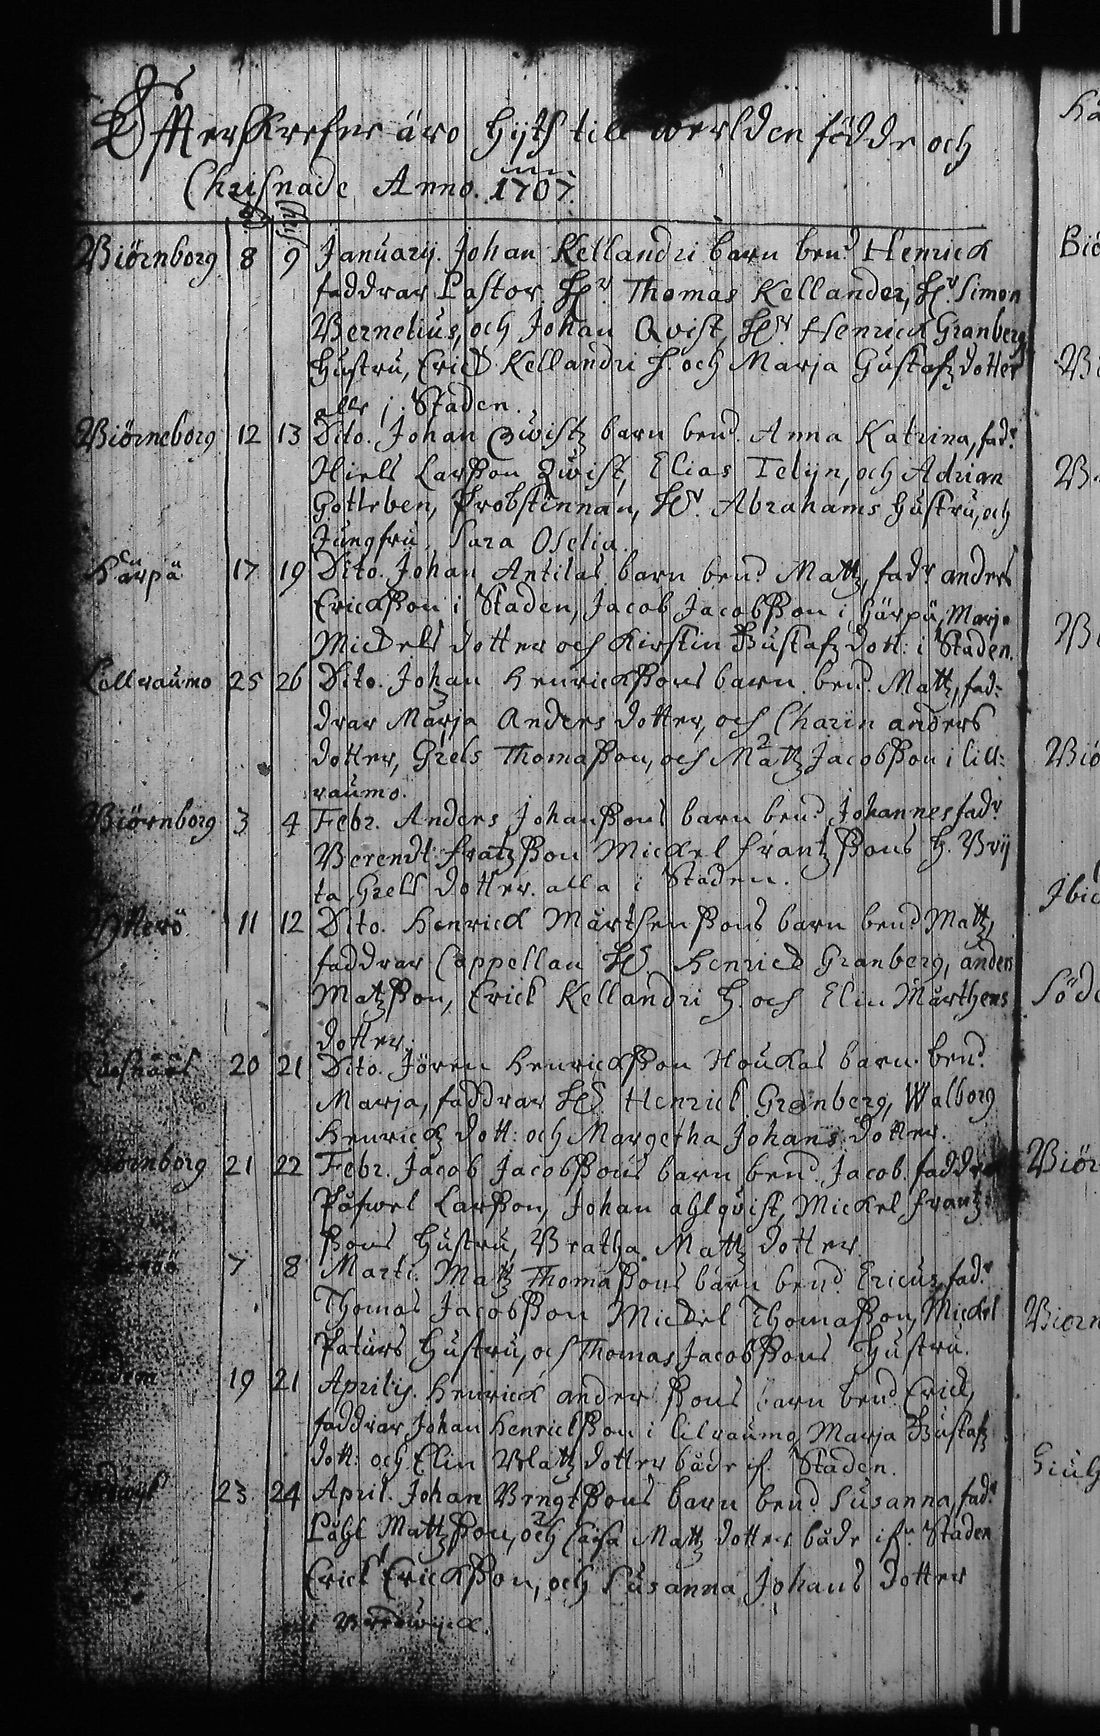 Effterskrefne äro hijtt till werlden födde och
Christnade Anno. 1707.
Biörnborg 8 9 Januarij. Johan Kellandri barn bend Henrick
faddrar Pastor Hr. Thomas Kellander, Hr. Simon
Bernelius, och Johan Qvist, Hr Henrick Granberg
hustru, Erick Kellandri H. och Marja Gustafz dotter
alle j Staden.
Biörneborg 12 13 Dito. Johan Qwistz barn bend. Anna Katrina, fadr
Niels Larsson Qwist, Elias Telijn, och Adrian
Gotleben, Probstinnan, Hr. Abrahams hustru, och
Jungfru Sara Oselia.
Härpä 17 19 Dito. Johan Antilas barn bend Mattz, fadr anders
Ericksson i Staden, Jacob Jacobsson i härpä, Marja
Mickels dotter och Kirstin Gustafz dott: i Staden.
Lillraumo 25 26 Dito. Johan Henricksons barn bend Mattz, fad:
drar Marja Anders dotter, och Charin anders
dotter, Grels Thomasson, och Mattz Jacobsson i lill:
raumo.
Biörnborg 3 4 Febr. Anders Johanssons barn bend Johannes fadr
Berendt frantzsson Mickel frantzssons h. Brij
ta Grels dotter alla i Staden.
11 12 Dito. Henrick Mårthenssons barn bend Mattz,
faddrar Cappellan Hr Henrick Granberg, anders
Matzsson, Erick Kellandri H. och Elin Mårthens
dotter.
20 21 Dito. Jören Henricksson Houkas barn bend
Marja, faddrar Hr Henrick Granberg, Walborg
Henrickz dott: och Margetha Johans dotter.
Biörnborg 21 22 Febr. Jacob Jacobssons barn bend Jacob faddrar
Påfwel Larsson, Johan ahlqvist, Mickel frantz
ssons hustru, Breatha Mattz dotter.
7 8 Marti. Mattz Thomassons barn bend Ericus, fadr
Thomas Jacobsson Mickel Thomasson, Mickel
Paturs hustru, och Thomas Jacobssons hustru.
19 21 Aprilij. Henrick anderssons barn bend Erick,
faddrar Johan Henricksson i lilraumo Marja Gustafz
dott: och Elin Mattz dotter både if Staden.
23 24 April. Johan Bengtssons barn bend Susanna, fadr
Påhl Mattzsson, och Caisa Mattz dotter både ifr Staden
Erick Ericksson, och Susanna Johans dotter